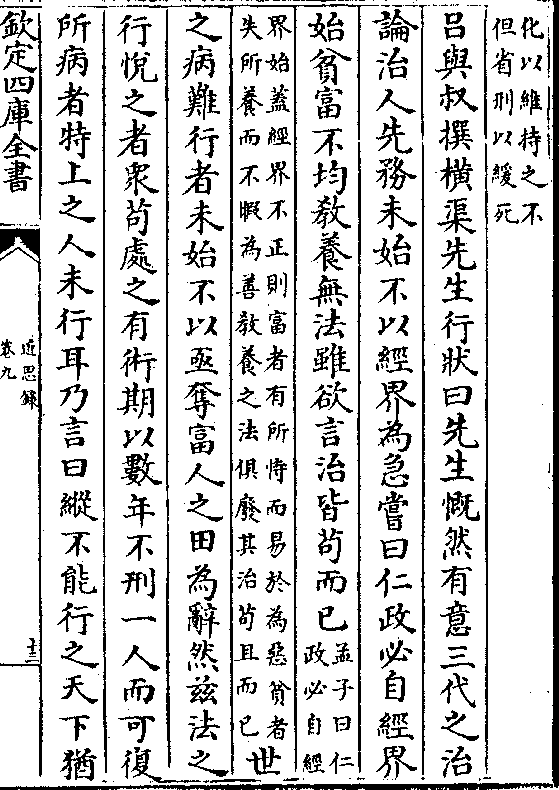 化以維持之不
但省刑以緩死
呂與叔撰橫渠先生行狀曰先生慨然有意三代之治
論治人先務未始不以經界為急嘗曰仁政必自經界
始貧富不均教養無法雖欲言治皆茍而已
孟子曰仁
政必自經
界始蓋經界不正則富者有所恃而易於為惡貧者
失所養而不暇為善教養之法俱廢其治茍且而已
世
之病難行者未始不以亟奪富人之田為辭然兹法之
行悅之者衆茍處之有術期以數年不刑一人而可復
所病者特上之人未行耳乃言曰縱不能行之天下猶
欽定四庫全書
近思錄
卷九
十三